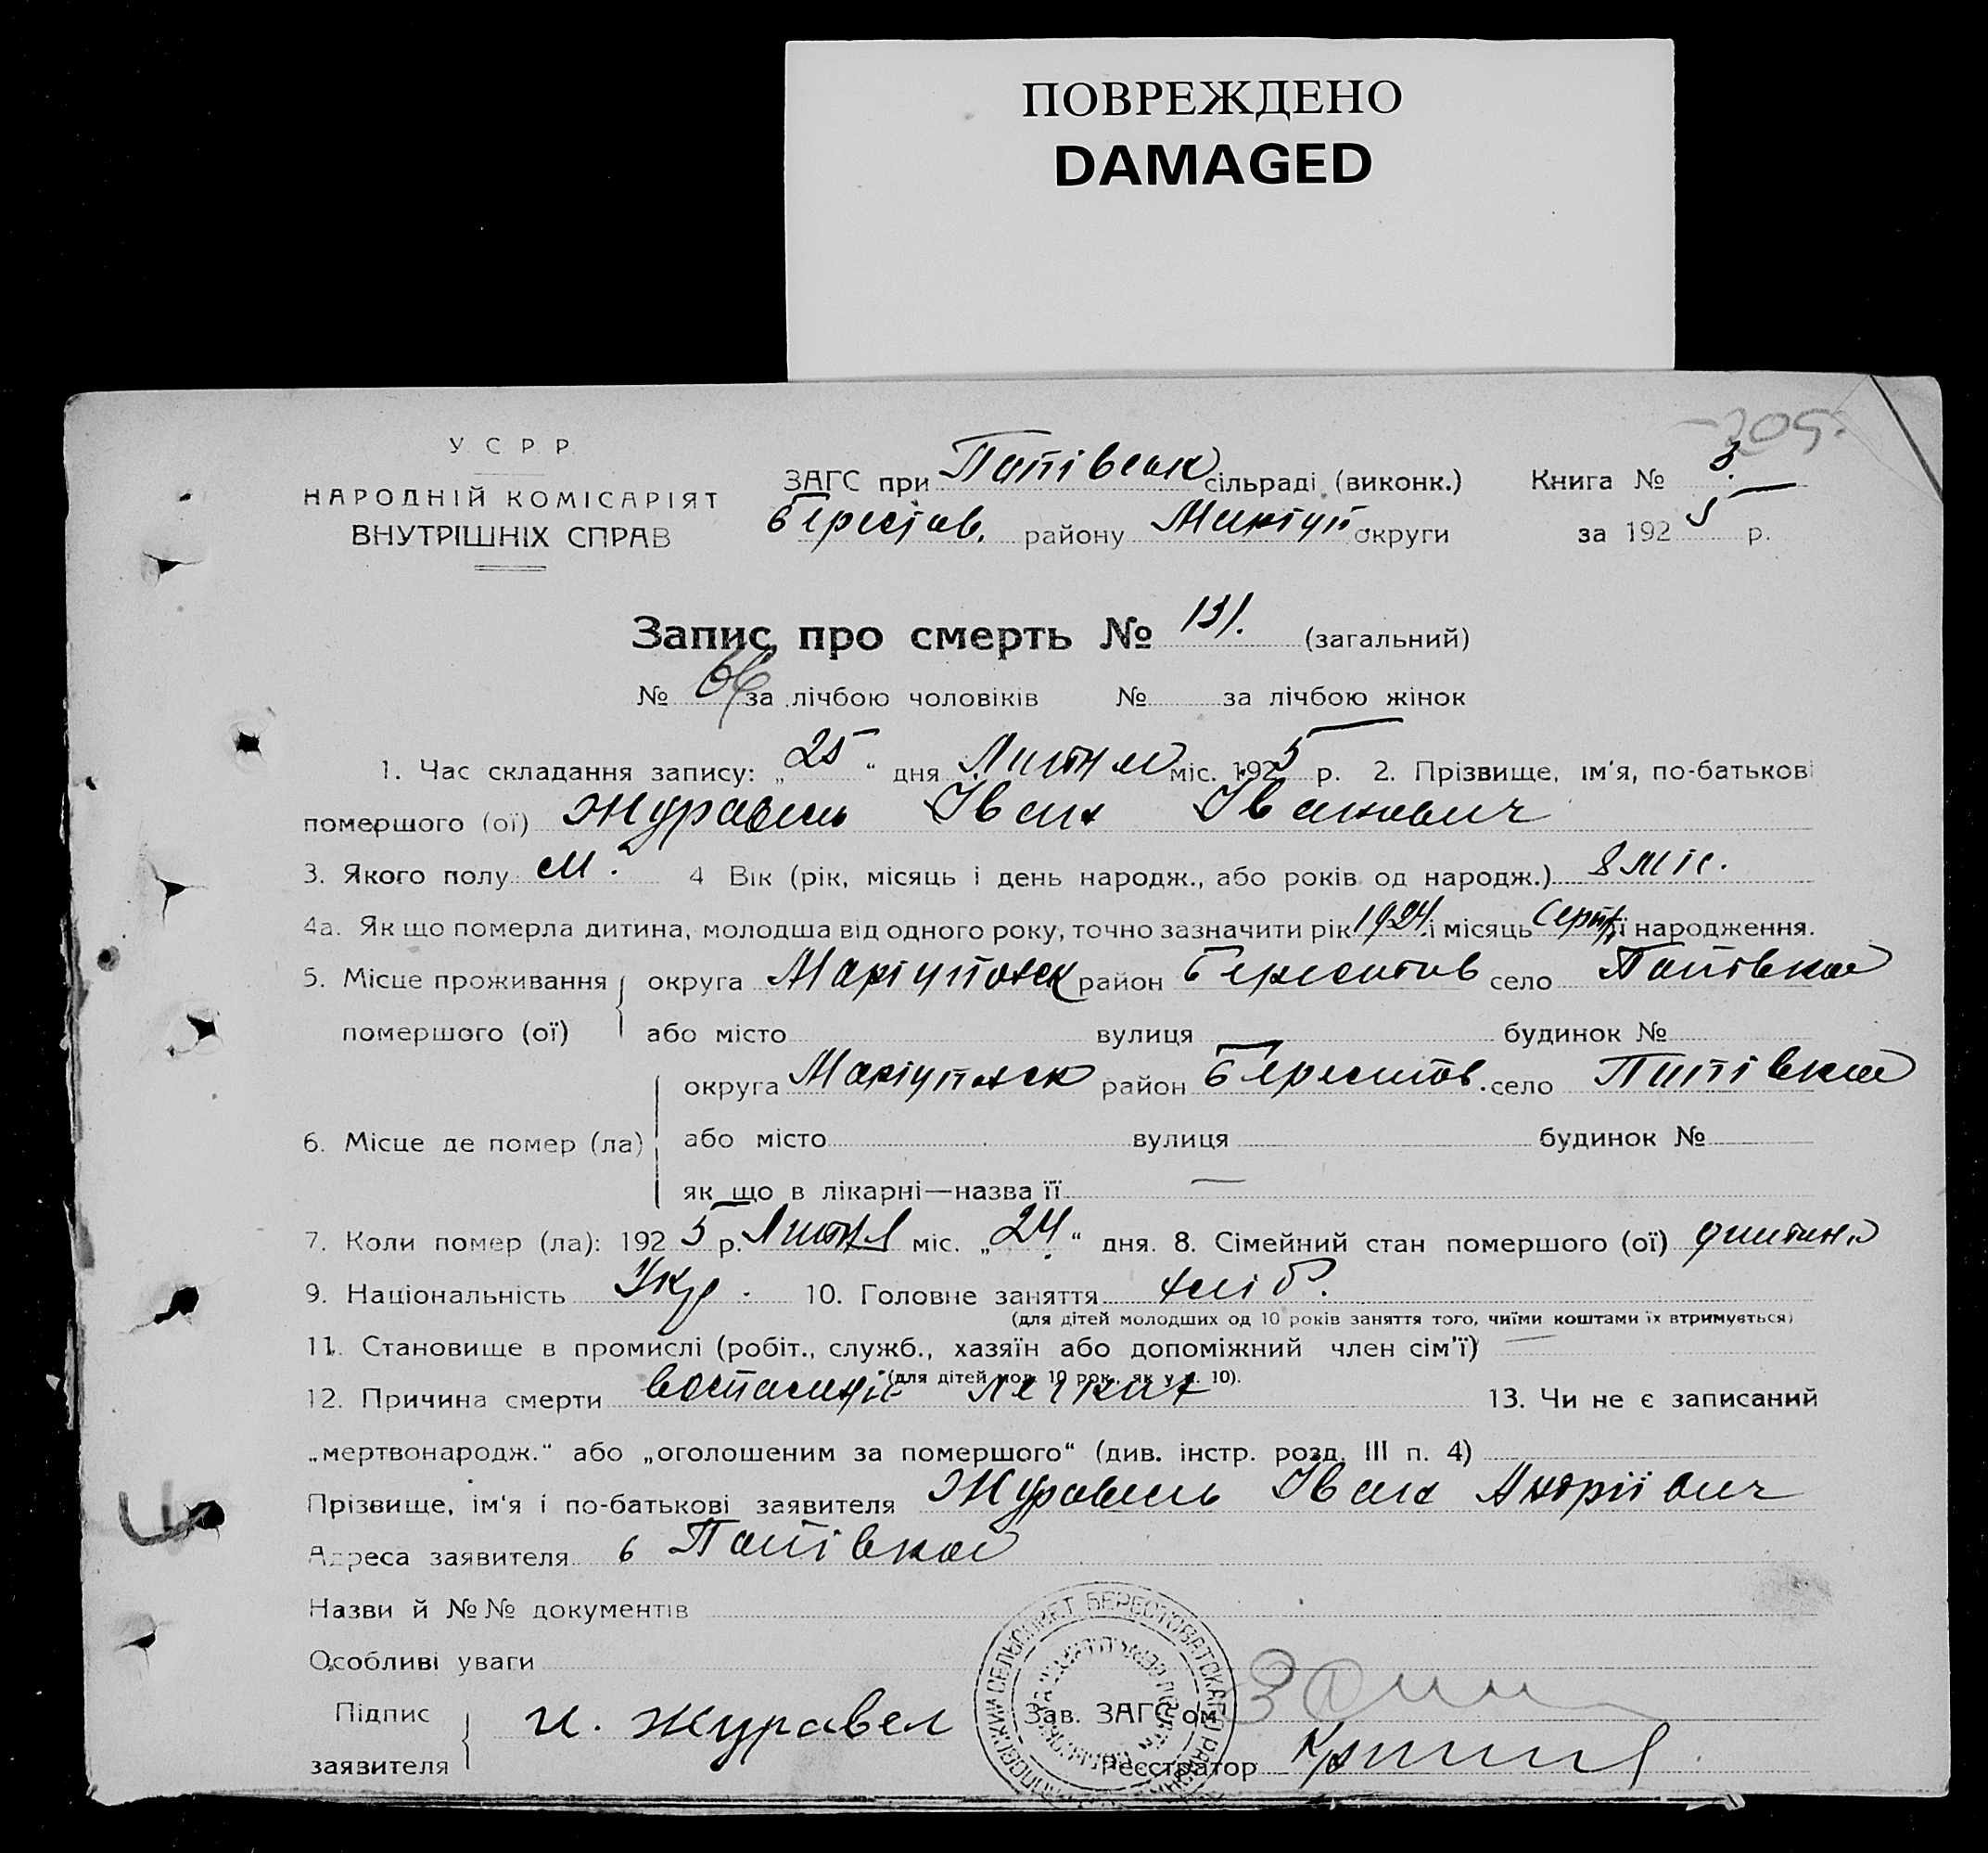 ПОВРЕЖДЕНО
DAMAGED
305.
У С Р Р.
НАРОДНІЙ КОМІСАРІЯТ
ВНУТРІШНІХ СПРАВ
ЗАГС при Попівськ сільраді (виконк.) Книга № 3.
Берестов. району Маріуп округи за 1925 р.
Запис про смерть № 131. (загальний)
№ 66 за лічбою чоловіків № за лічбою жінок
1. Час складання запису: „25“ дня міс. 1925 р. 2. Прізвище, ім'я, по-батькові
помершого (ої) Журавель Іван Іванович
3. Якого полу м. 4 Вік (рік, місяць і день народж., або років од народж.) 8 міс.
4а. Як що померла дитина, молодша від одного року, точно зазначити рік 1924 і місяць її народження.
5. Місце проживання округа Маріупольск район Берестов село Попівка
помершого (ої) або місто вулиця будинок №
округа Маріупольск район Берестов. село Попівка
6. Місце де помер (ла) або місто вулиця будинок №
як що в лікарні—назва її —
7. Коли помер (ла): 1925 р. міс. „24“ дня. 8. Сімейний стан помершого (ої) дитина
9. Національність Укр. 10. Головне заняття хліб.
(для дітей молодших од 10 років заняття того, чиїми коштами їх втримується)
11. Становище в промислі (робіт., служб., хазяїн або допоміжний член сім'ї) —
(для дітей мол. 10 рок., як у п. 10).
12. Причина смерти 13. Чи не є записаний
„мертвонародж.“ або „оголошеним за помершого“ (див. інстр. розд. III п. 4)
Прізвище, ім'я і по-батькові заявителя Журавель Іван Андріївич
Адреса заявителя в Попівка
Назви й №№ документів
Особливі уваги
Підпис
заявителя И. Журавел
Зав. ЗАГС'ом
Реєстратор
СЕЛЬСОВЕТ БЕРЕСТОВАТСКАГО